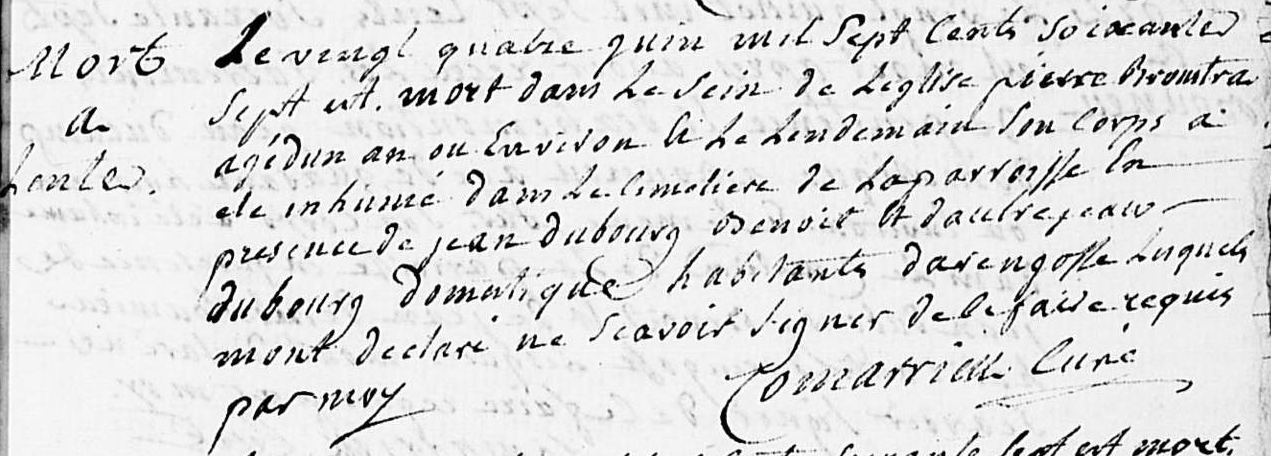 Mort
a
Lente
Le vingt quatre juin mil Sept Cents Soixante
Sept est mort dans Le Sein de Leglise pierre
agé dun an ou Environ Et Le Lendemain Son Corps a
ete inhumé dans Le Cimetiere de Laparroisse En
presence de jean dubourg Benoit Et dautre jean
dubourg domestique habitants darengosse Lesquels
mont declaré ne Scavoir Signer de Le faire requis
par moy
Curé
Sept est mort